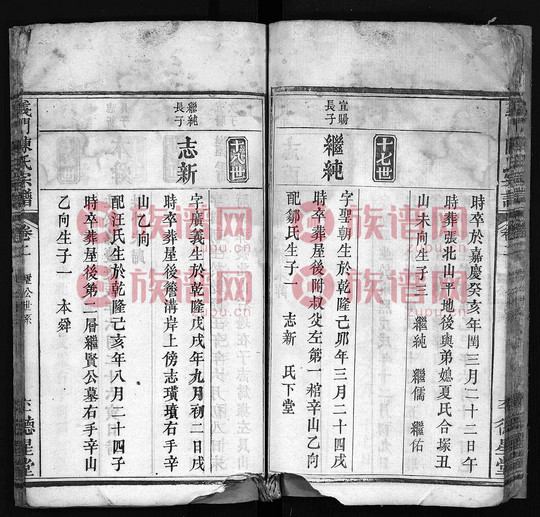 時卒於嘉慶癸亥年閏三月二十二日午
時葬張北山平地後與弟媳夏氏合塚丑
山未向生子三 繼純 繼儒 繼佑
十七世
宜賜
長子
繼純
字聖朝生於乾隆己卯年三月二十四戌
時卒葬屋後附叔父左第一棺辛山乙向
配鄒氏生子一 志新 氏下堂
十八世
繼純
長子
志新
字廣義生於乾隆戊戌年九月初二日戌
時卒葬屋後簷溝岸上傍志璜墳右手辛
山乙向
配汪氏生於乾隆己亥年八月二十四子
時卒葬屋後第二層繼賢公墓右手辛山
乙向生子一 本舜
義門陳氏宗譜
卷
德星堂
族谱网
zupu.cn